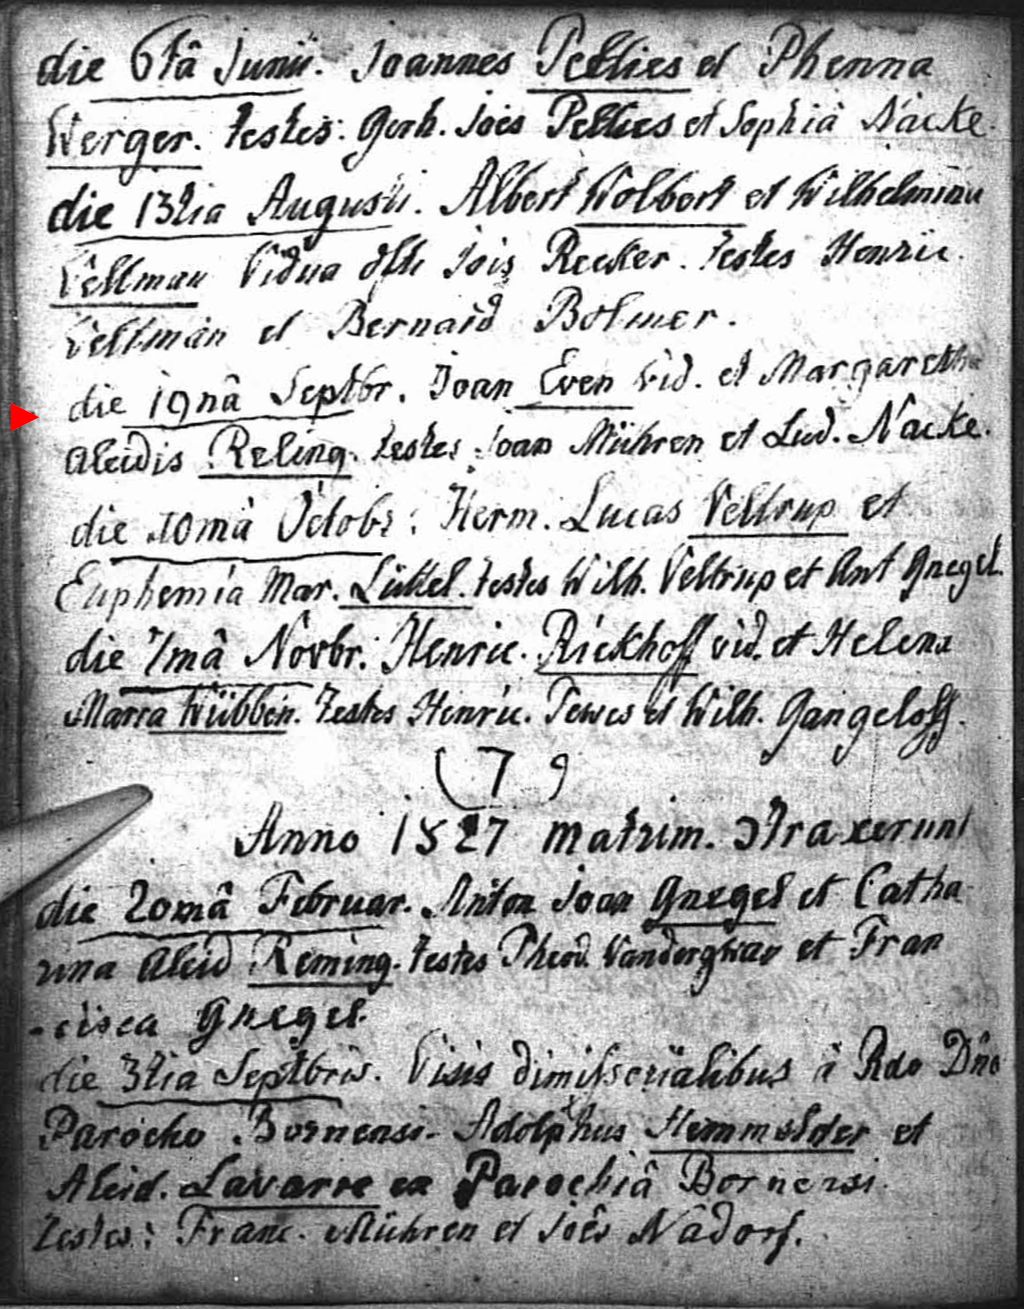 die 6tâ Junii. Joannes Pellies et Phenna
Werger. testes: Gerh. Joês Pellies et Sophiâ Nácke.
die 13tia Augusti. Albert Wolbert et Wilhelmina
Veltman Vidua dfti Jois Recker. testes Henric.
Veltman et Bernard Bolmer.
die 19nâ Septbr. Joan Even vid. et Margaretha
Aleidis Reling. testes Joan Mühren et Lud. Nácke.
die 10mâ Octobr: Herm. Lucas Veltrup et
Euphemia Mar. Lüttel. testes Wilh. Veltrup et Ant Gnegel.
die 7mâ Novbr. Henric. Rickhoff vid. et Helena
Maria Wübben. testes Henric. Tewes et Wilh. Gangeloff.
(7 9
Anno 1827 matrim. Straxerunt
die 20mâ Februar. Anton Joan Gnegel et Catha-
rina Aleid Reming. testes Theod. et Fran
-cisca Gnegel.
die 3tia Septbris. Visis dimissorialibus à Rdo Dno
Parocho Bornensi. Adolphus Hemmelder et
Aleid. Lavarre ex Parochiâ Bornensi.
testes: Franc. Mühren et Joês Nâdorf.